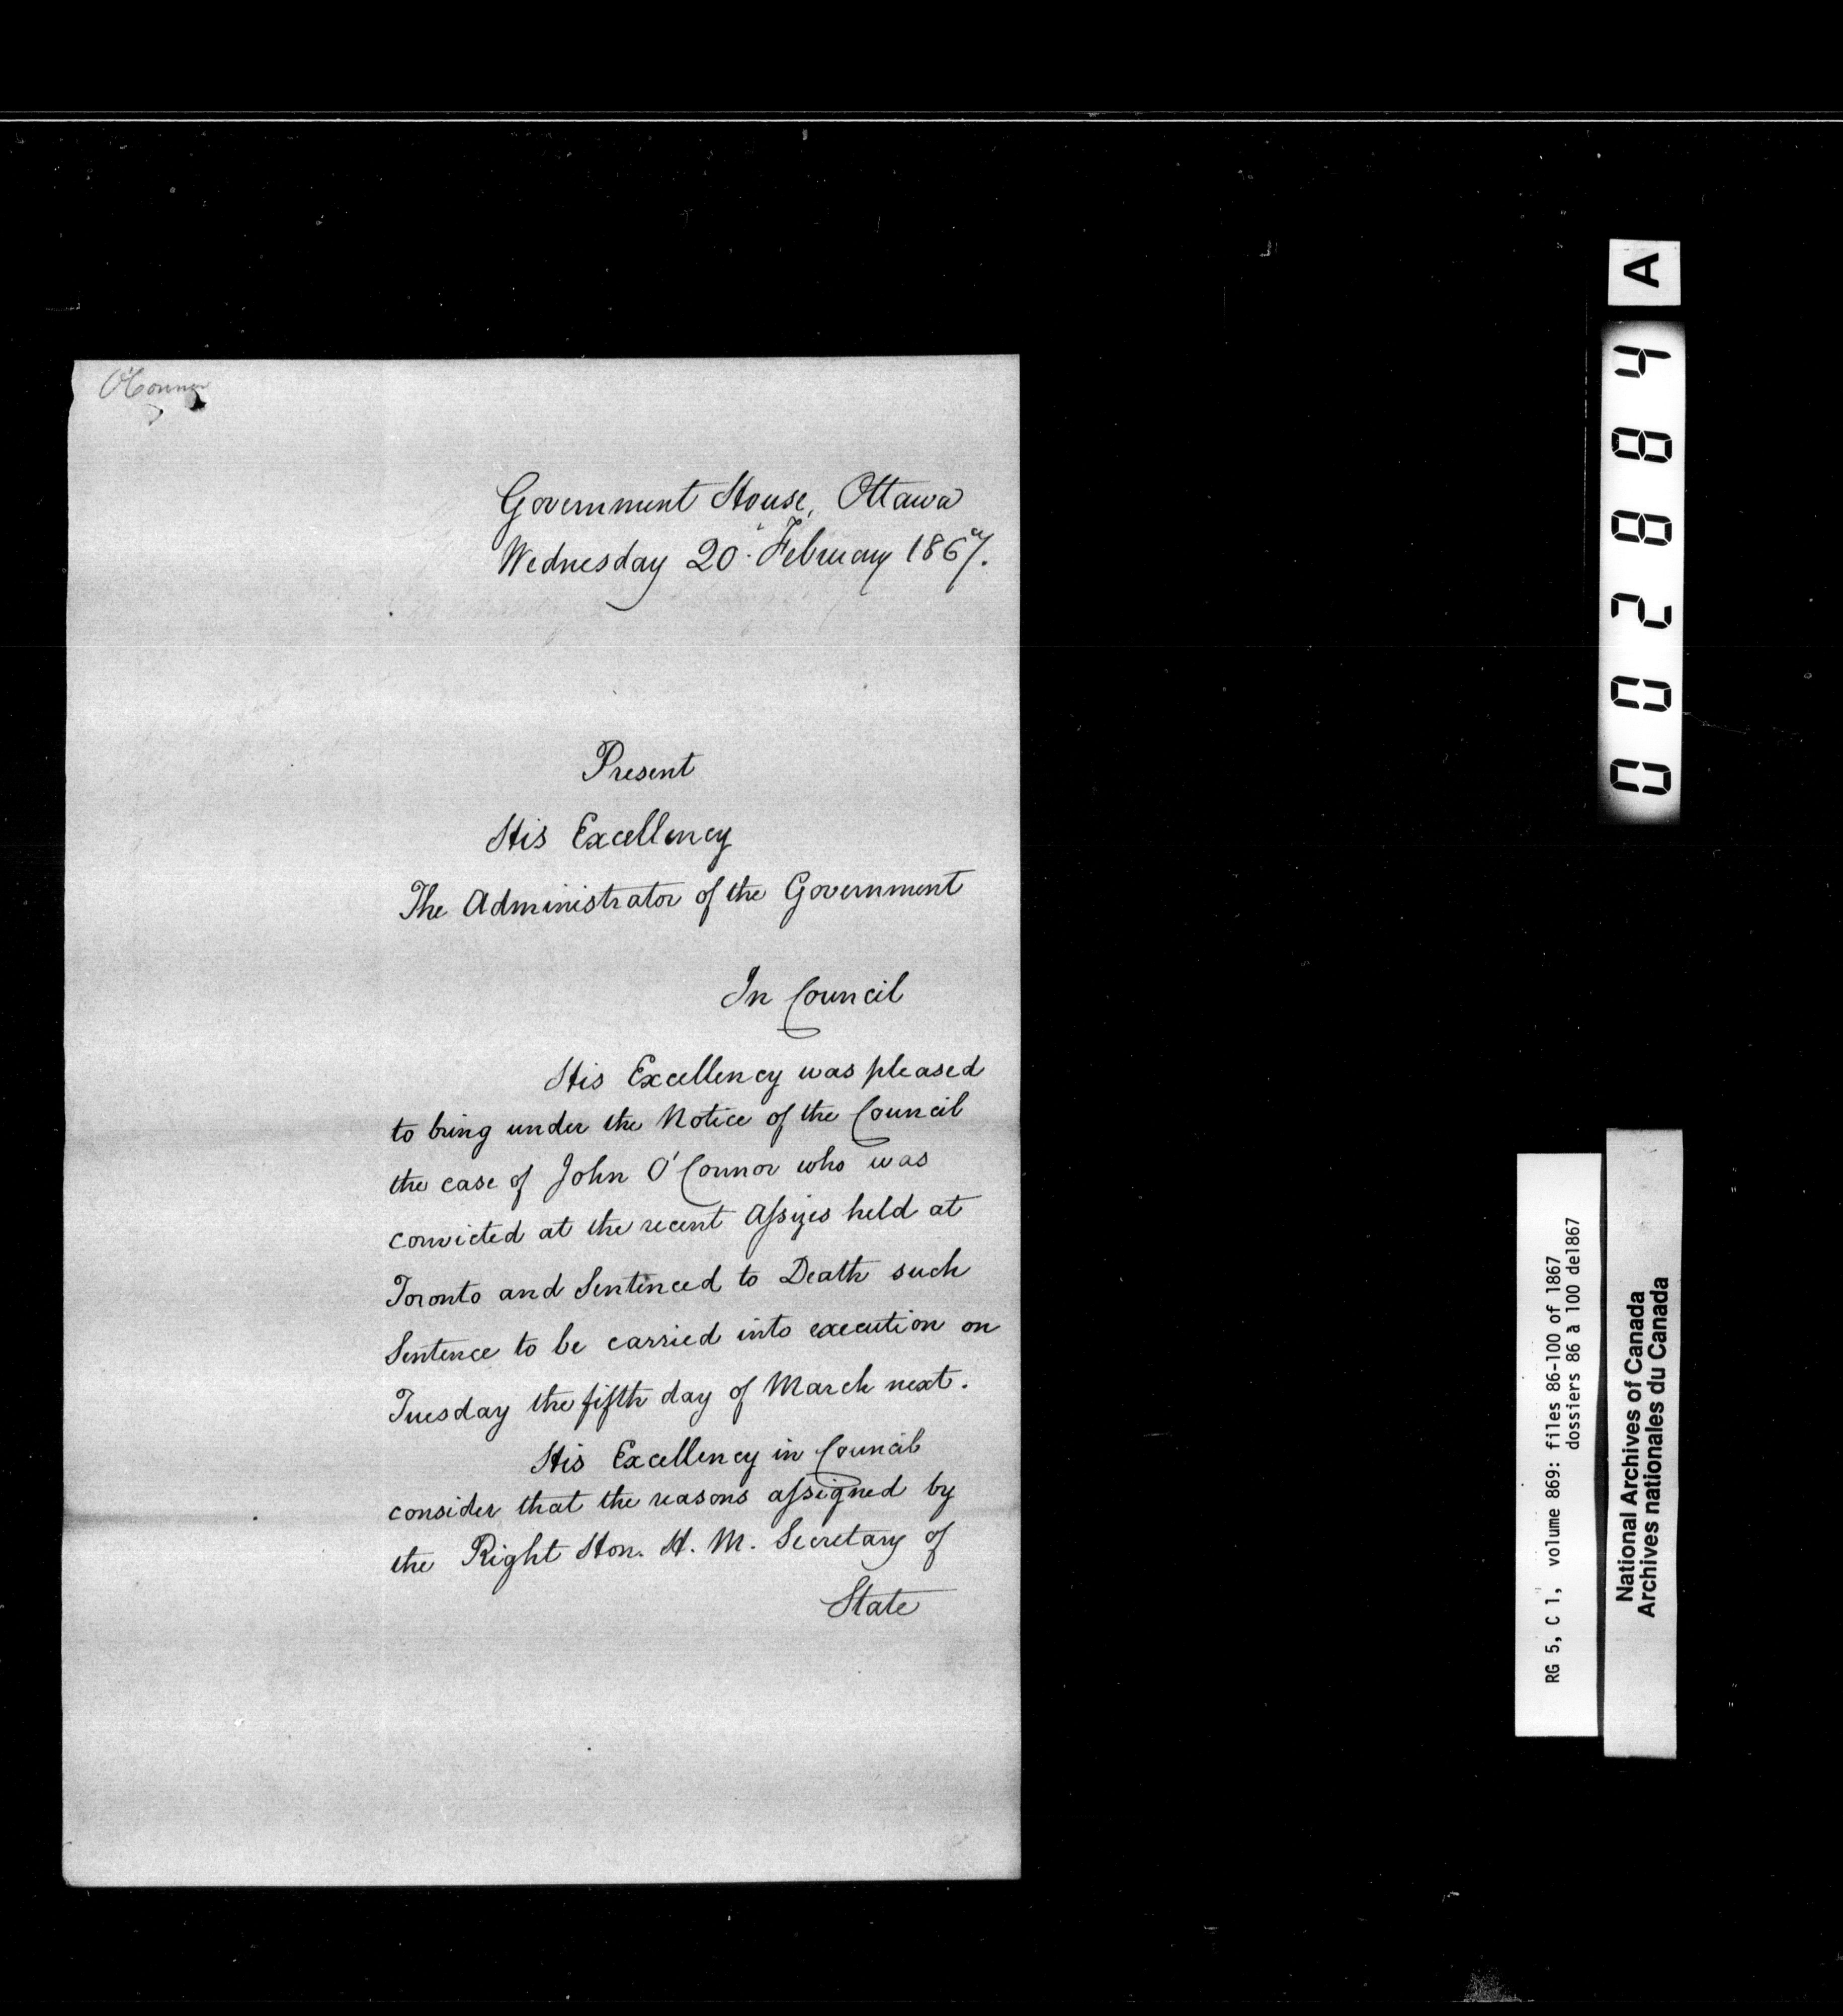 O'Connor
Government House, Ottawa
Wednesday 20 February 1867.
Present
His Excellency
The Administrator of the Government
In Council
His Excellency was pleased
to bring under the Notice of the Council
the case of John O'Connor who was
convicted at the recent Assizes held at
Toronto and Sentenced to Death such
Sentence to be carried into execution on
Tuesday the fifth day of March next.
His Excellency in Council
consider that the reasons assigned by
the Right Hon. H. M. Secretary of
State
A
002884
RG 5, C 1, volume 869: files 86-100 of 1867
dossiers 86 à 100 de1867
National Archives of Canada
Archives nationales du Canada